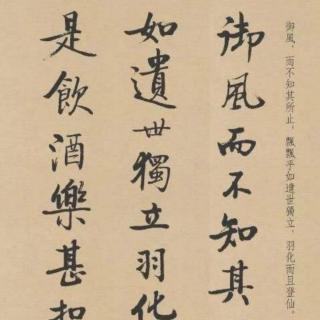 御風，而不知其所止，飄飄乎如遺世獨立，羽化而且登仙。
御風而不知其
如遺世獨立羽化
是飲酒樂甚扣